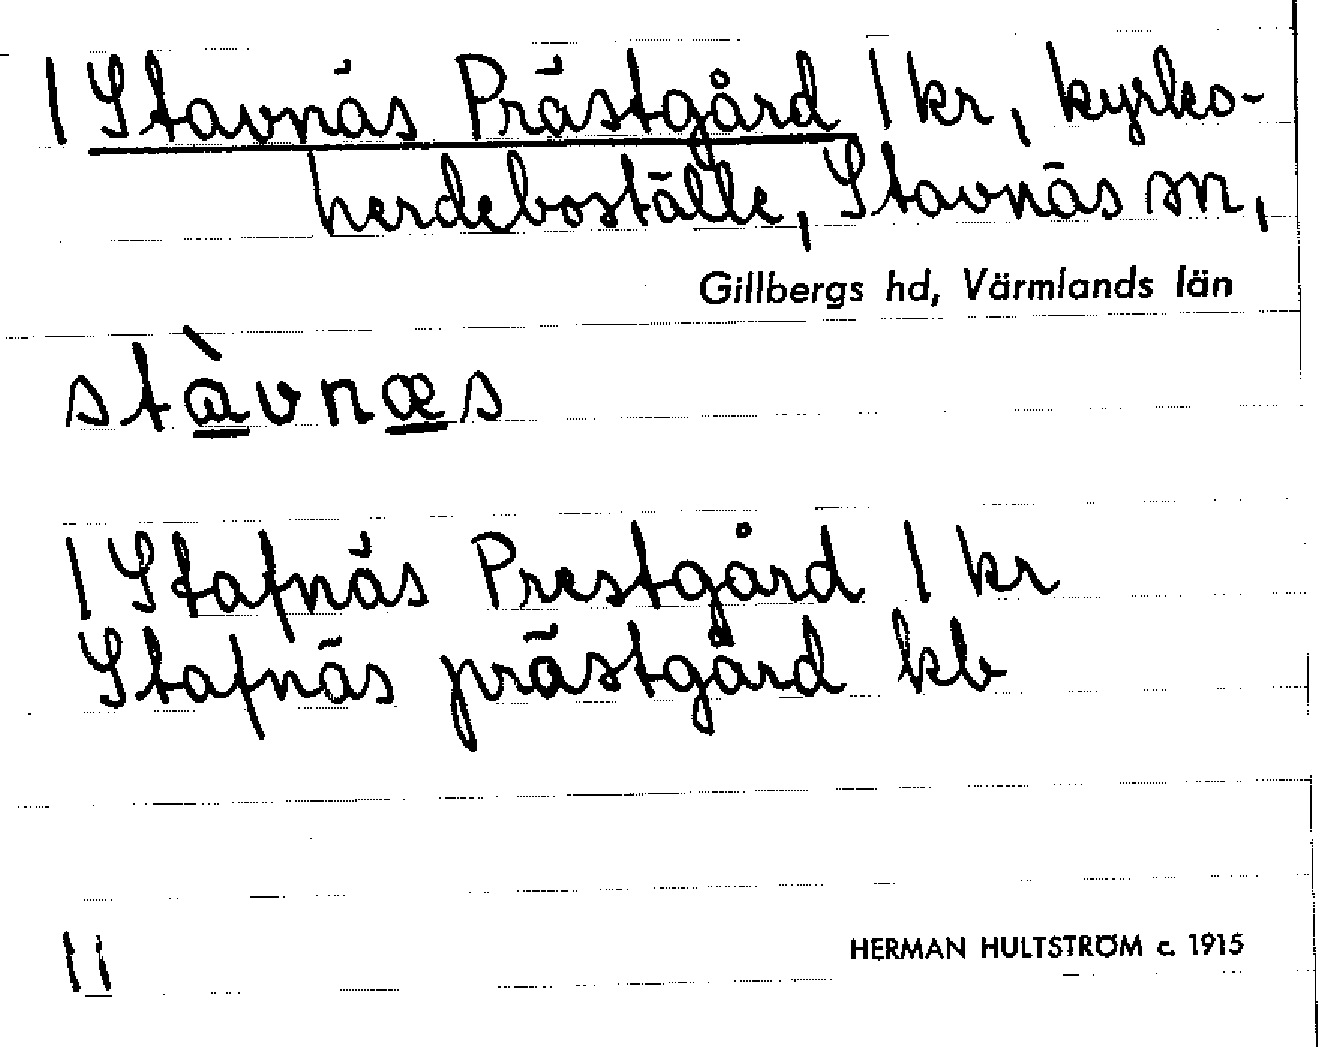 1 Stavnäs Prästgård 1 kr, kyrko-
herdeboställe, Stavnäs sn,
Gillbergs hd, Värmlands län
stàvnæs
1 Stafnäs Prestgård 1 kr
Stafnäs prästgård kb
1 i
HERMAN HULTSTRÖM c. 1915